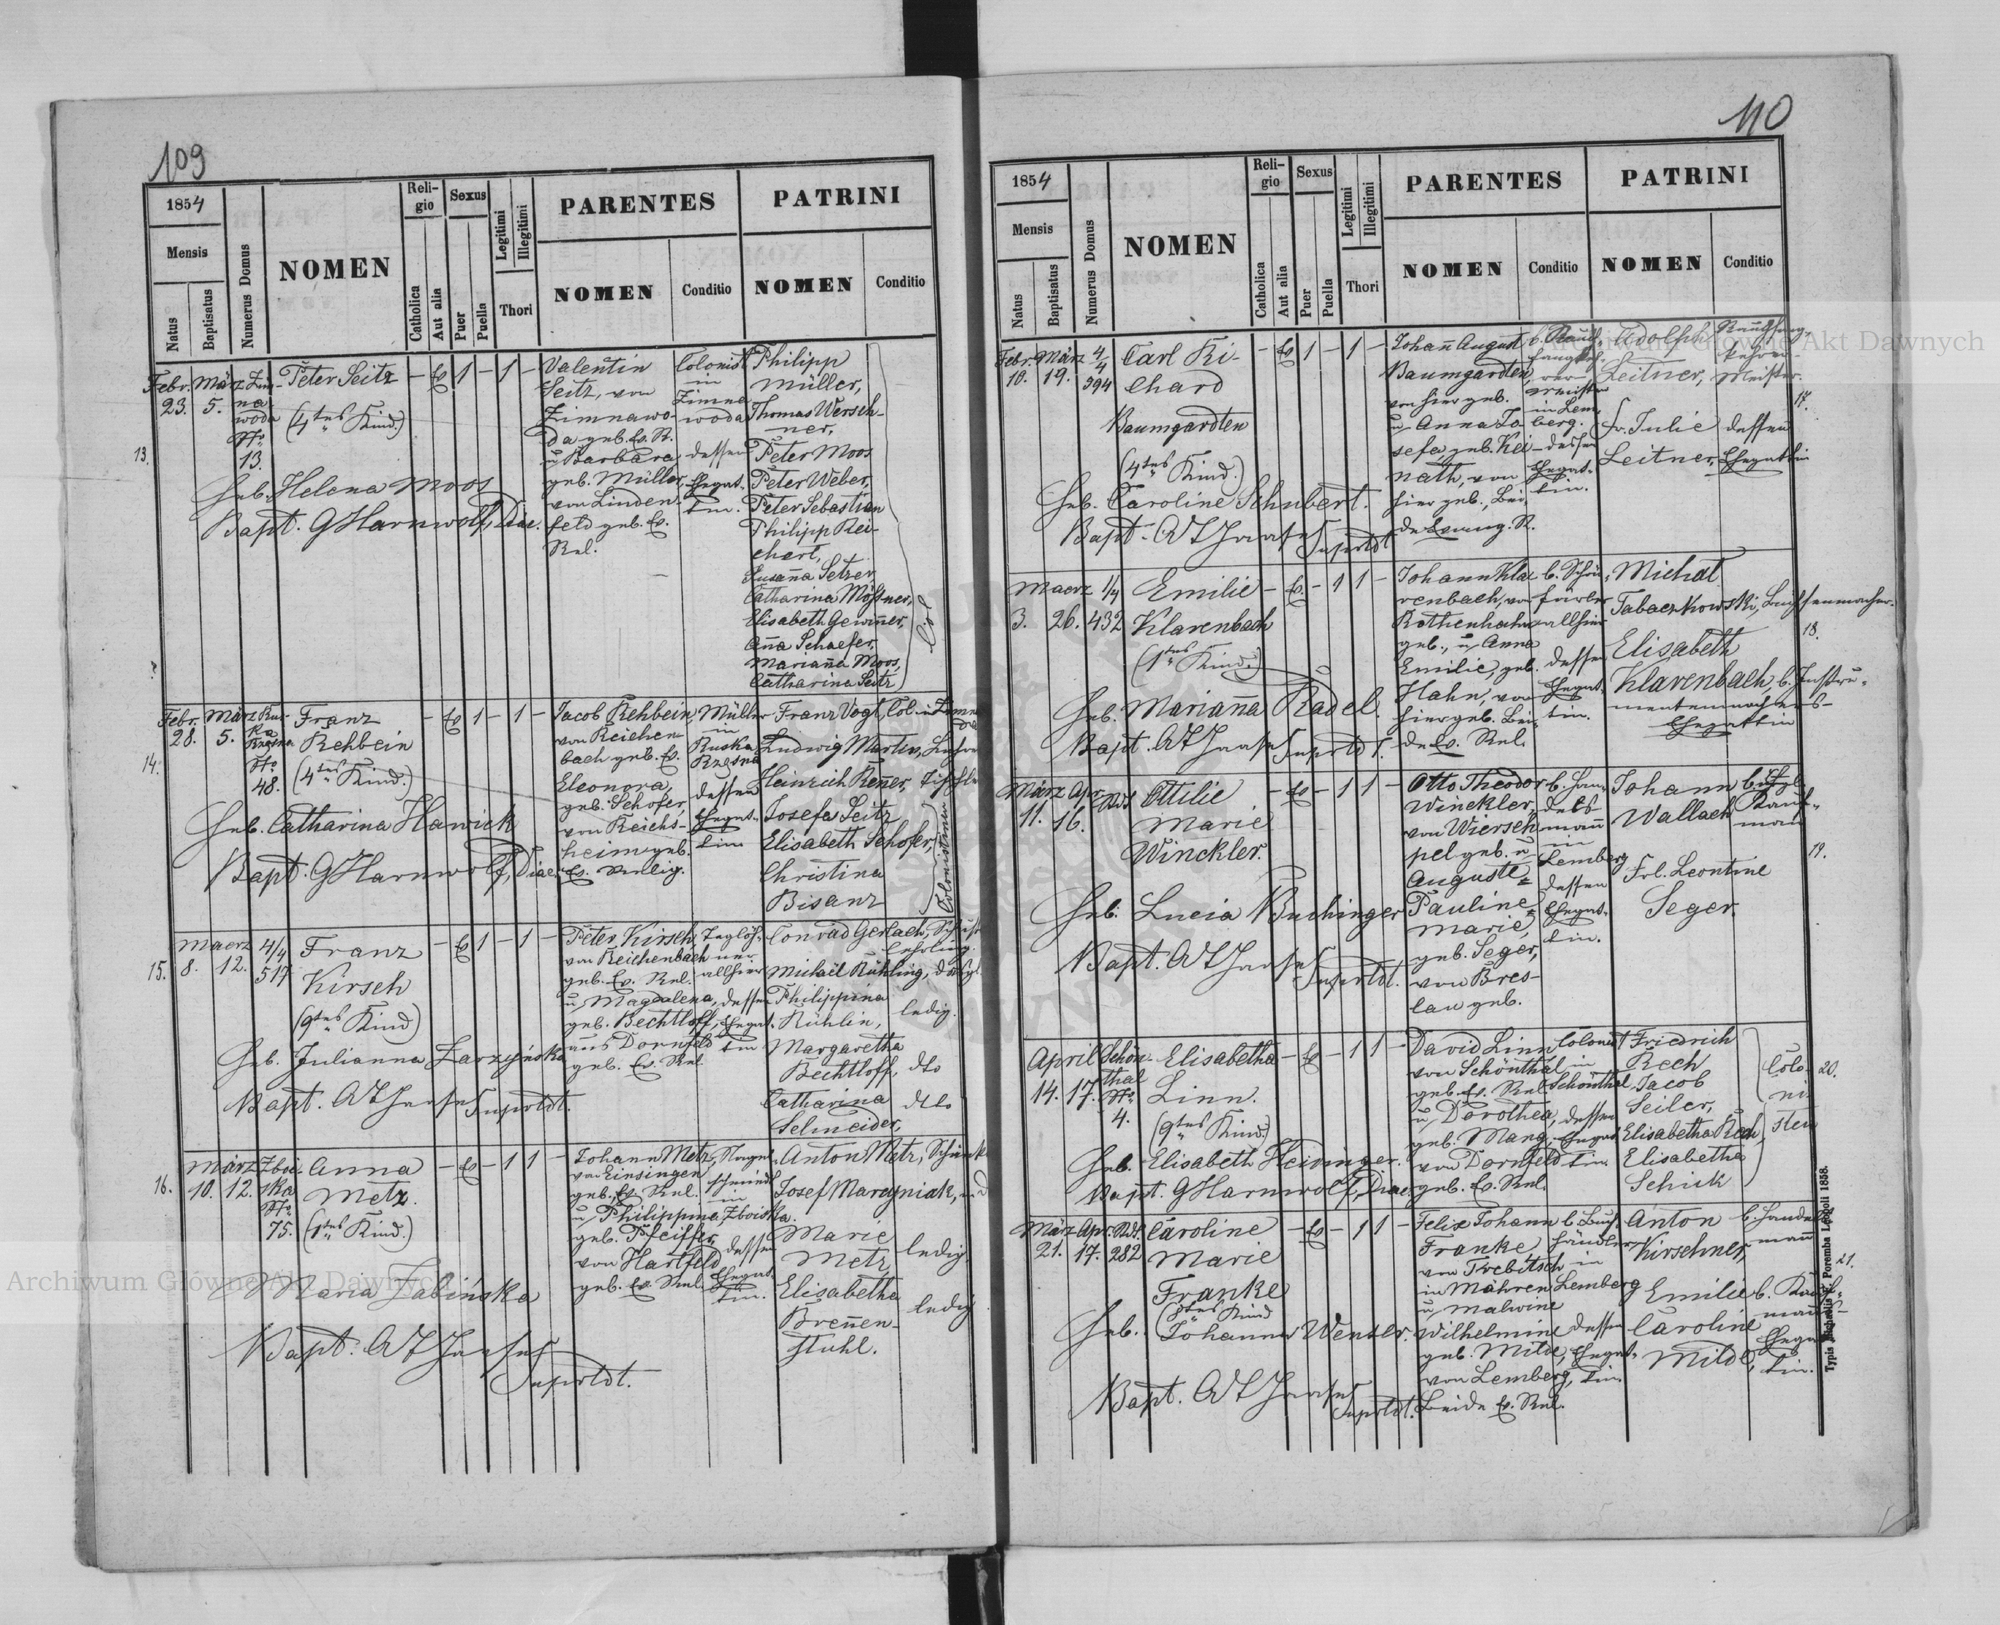 109
1854
Mensis
Natus
Baptisatus
Numerus Domus
NOMEN
Religio
Catholica
Aut alia
Sexus
Puer
Puella
Legitimi
Illegitimi
Thori
PARENTES
NOMEN
Conditio
PATRINI
NOMEN
Conditio
13.
Febr. 23.
März 5.
Zimnawoda
No 13.
Peter Seitz
(4tes Kind.)
- Ev 1 - 1 -
Valentin
Seitz, von
Zimnawo-
da geb. Ev. R.
u. Barbara
geb. Müller,
von Linden-
feld geb. Ev.
Rel.
Colonist
in
Zimna
woda
dessen
Ehegat-
tin.
Philipp
Müller,
Thomas Wersch-
ner,
Peter Moos
Peter Weber,
Peter Sebastian
Philipp Rei-
chert,
Susanna Setzer,
Catharina Mößner,
Elisabeth Gewinner,
Anna Schaefer,
Marianna Moos,
Catharina Seitz
Col
Heb. Helena Moos
Bapt. GHarnwolf, Diac.
14.
Febr. 28.
März 5.
Rus-
ka
Rzesna
No 48.
Franz
Rehbein
(4tes Kind.)
- Ev 1 - 1 -
Jacob Rehbein,
von Reichen-
bach geb. Ev.
Eleonora,
geb. Schofer,
von Reichs-
heim geb.
Ev. Relig.
Müller
in
Ruska
Rzesna
dessen
Ehegat-
tin
Franz Vogt, Col.
Ludwig Marten,
Heinrich Renner,
Josefa Seitz
Elisabeth Schofer,
Christina
Bisanz
Colonistinen
Heb. Catharina Hawick
Bapt. GHarnwolf, Diac.
15.
Maerz 8.
12.
4/4
517
Franz
Kirsch
(9tes Kind)
- Ev 1 - 1 -
Peter Kirsch,
von Reichenbach
geb. Ev. Rel.
u. Magdalena,
geb. Bechtloff,
aus Dornfeld
geb. Ev. Rel
Taglöh-
ner
allhier
dessen
Ehegat-
tin
Conrad Gerlach,
Lehrling.
Michael Rühling,
Philippina
Rühlin, ledig.
Margaretha
Bechtloff, dto
Catharina dto
Schneider,
Heb. Julianna Zarzyńska
Bapt. AT Haase Suprtdt.
16.
März 10.
12.
Zboi-
ska
No 75.
Anna
Metz.
(1tes Kind.)
- Ev - 1 1 -
Johann Metz,
von Einsingen
geb. Ev. Rel.
u. Philippine
geb. Pfeiffer,
von Hartfeld
geb. Ev. Rel.
Nagel-
schmied
in
Zboiska.
dessen
Ehegat-
tin.
Anton Metz,
Josef Marcyniak,
Marie
Metz ledig
Elisabetha
Brennen- ledig
stuhl.
Maria Zabińska
Bapt. AT Haase
Suprtdt.
110
1854
Mensis
Natus
Baptisatus
Numerus Domus
NOMEN
Religio
Catholica
Aut alia
Sexus
Puer
Puella
Legitimi
Illegitimi
Thori
PARENTES
NOMEN
Conditio
PATRINI
NOMEN
Conditio
Febr. 18.
März 19.
4/4
394
Carl Ri-
chard
Baumgardten
(4tes Kind.)
- Ev 1 - 1 -
Johann August
Baumgardten,
von hier geb.
u. Anna Jo-
sefa, geb. Rei-
nath, von
hier geb., Bei-
de Evang. R.
meister
in Lem-
berg.
dessen
Ehegat-
tin.
Adolph
Leitner,
Meister.
Fr. Julie dessen
Leitner, Ehegattin
17.
Heb. Caroline Schubert.
Bapt. AT Haase Suprtdt
Maerz 3.
26.
1/4
432
Emilie
Klarenbach
(1tes Kind.)
- Ev. - 1 1 -
Johann Kla-
renbach, von
Rothenhahn
geb., u. Anna
Emilie, geb.
Hahn, von
hier geb. Bei-
de Ev. Rel.
b. Schön-
färber
allhier
dessen
Ehegat-
tin.
Michal
Tabaczkowski, Buchsenmacher.
Elisabeth
Klarenbach, b. Instru-
mentenmachers-
Ehegattin
18.
Heb. Marianna Radel.
Bapt. AT Haase Suprtdt.
März 11.
Apr. 16.
Ottilie
Marie
Winckler.
- Ev - 1 1 -
Otto Theodor
Winckler,
von Wiersch-
pel geb. u.
Auguste
Pauline
Marie,
geb. Seger,
von Bres-
lau geb.
b. Han-
dels-
mann
in
Lemberg
dessen
Ehegat-
tin.
Johann
Wallach
Kauf-
man
Frl. Leontine
Seger.
19.
Heb. Lucia Buchinger
Bapt. AT Haase Suprtdt.
April 14.
17.
Schön-
thal
No 4.
Elisabetha
Linn.
(9tes Kind)
- Ev - 1 1 -
David Linn
von Schönthal
geb. Ev. Rel.
u. Dorothea,
geb. Mang,
von Dornfeld
geb. Ev. Rel.
Colonist
in
Schönthal
dessen
Ehegat-
tin.
Friedrich
Rech
Jacob
Seiler,
Elisabetha Rech
Elisabetha
Schick
Colo-
ni-
sten
20.
Heb. Elisabeth Heidinger.
Bapt. GHarnwolf, Diac.
März 21.
Apr. 17.
Rdt.
282
Caroline
Marie
Franke
- Ev - 1 1 -
Felix Johann
Franke
von Trebitsch
in Mähren
u. Malwine
Wilhelmine
geb. Milde,
von Lemberg,
Beide Ev. Rel.
b. Buch-
händler
in
Lemberg
dessen
Ehegat-
tin.
Anton
Kirschner,
b. Handels-
mann
Emilie
Caroline
Milde,
b. Kauf-
manns-
Ehegat-
tin.
21.
Heb. Johanna Wenzer.
Bapt. AT Haase
Suprtdt.
Typis Michaelis F. Poremba Leopoli 1858.
Archiwum Główne Akt Dawnych
Archiwum Główne Akt Dawnych